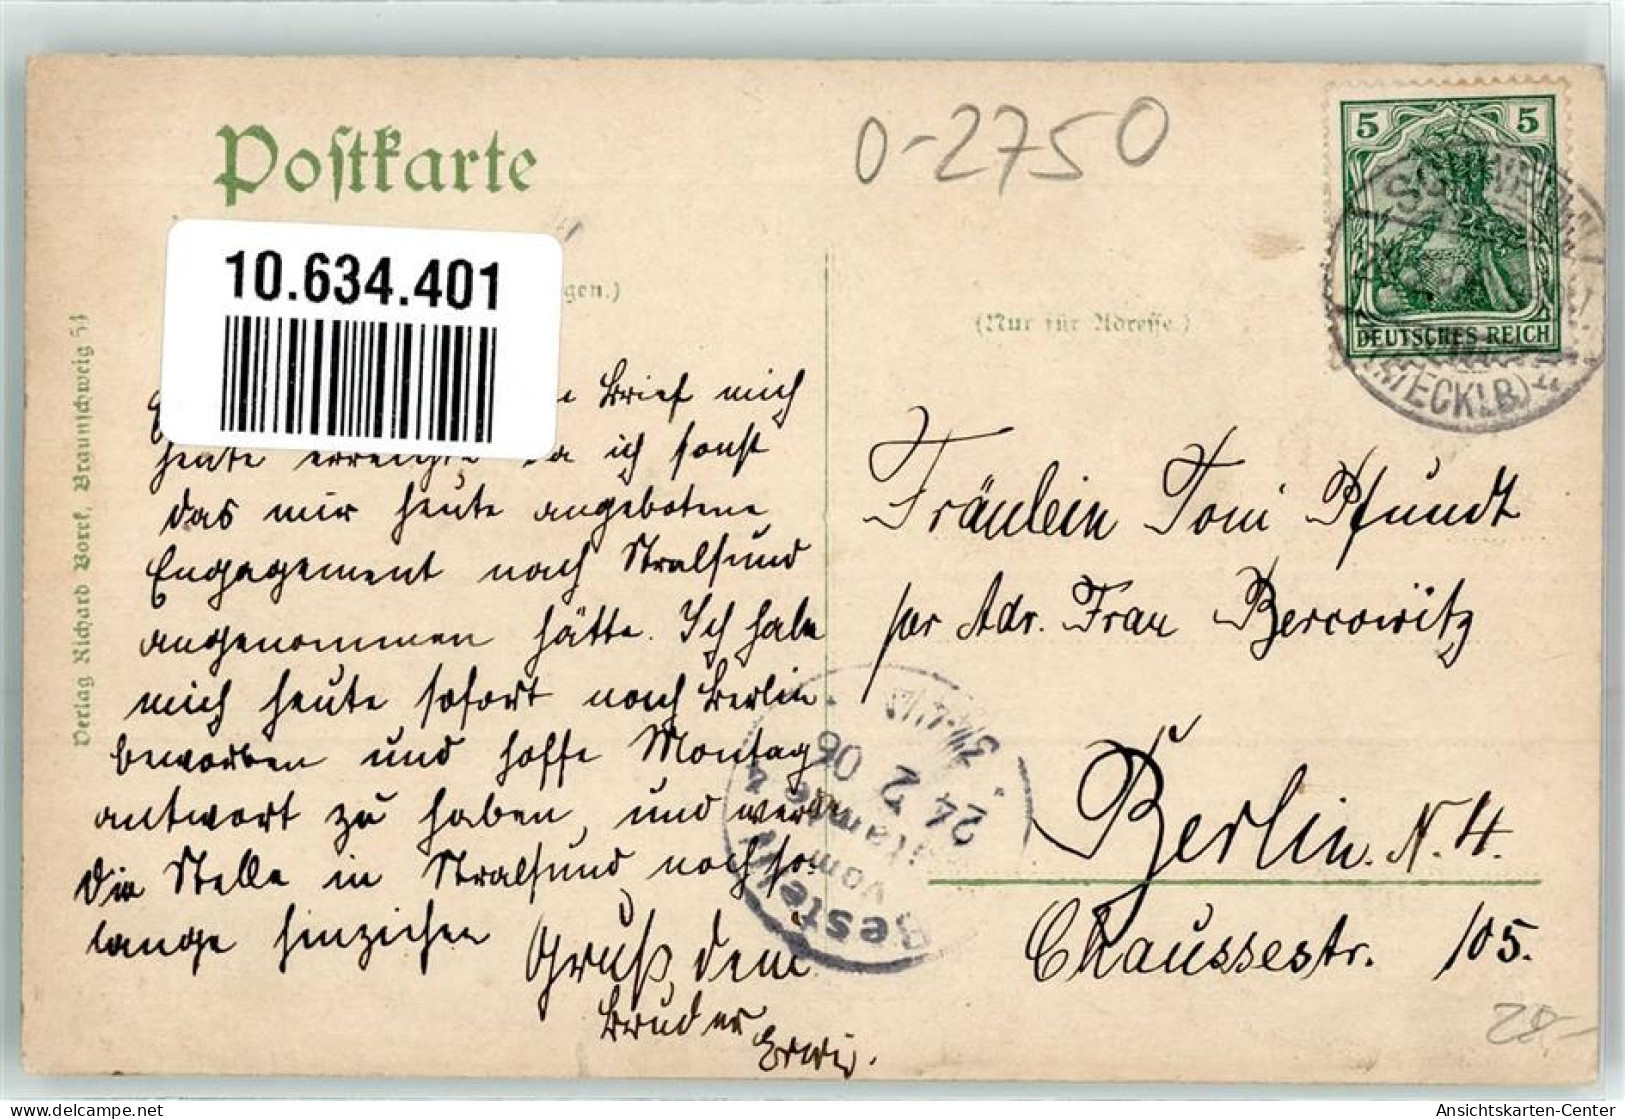 Postkarte
0-2750
10.634.401
gen.)
(Nur für Adresse.)
5 5
DEUTSCHES REICH
SCHWERIN
(MECKLB)
Verlag Richard Borek, Braunschweig 54
Brief mich
heute erreichte da ich sonst
das mir heute angebotene
Engagement nach Stralsund
angenommen hätte. Ich habe
mich heute sofort nach Berlin
beworben und hoffe Montag
antwort zu haben, und werde
die Stelle in Stralsund noch so
lange hinziehen
Gruß, dein
Bruder
Erwin.
Fräulein Toni Pfundt
per Adr. Frau Bercowitz
Berlin. N. 4.
Chaussestr. 105.
Bestellt
vom
Postamte 4
24 2 06
28.-
hpm@delcampe.net
Ansichtskarten-Center